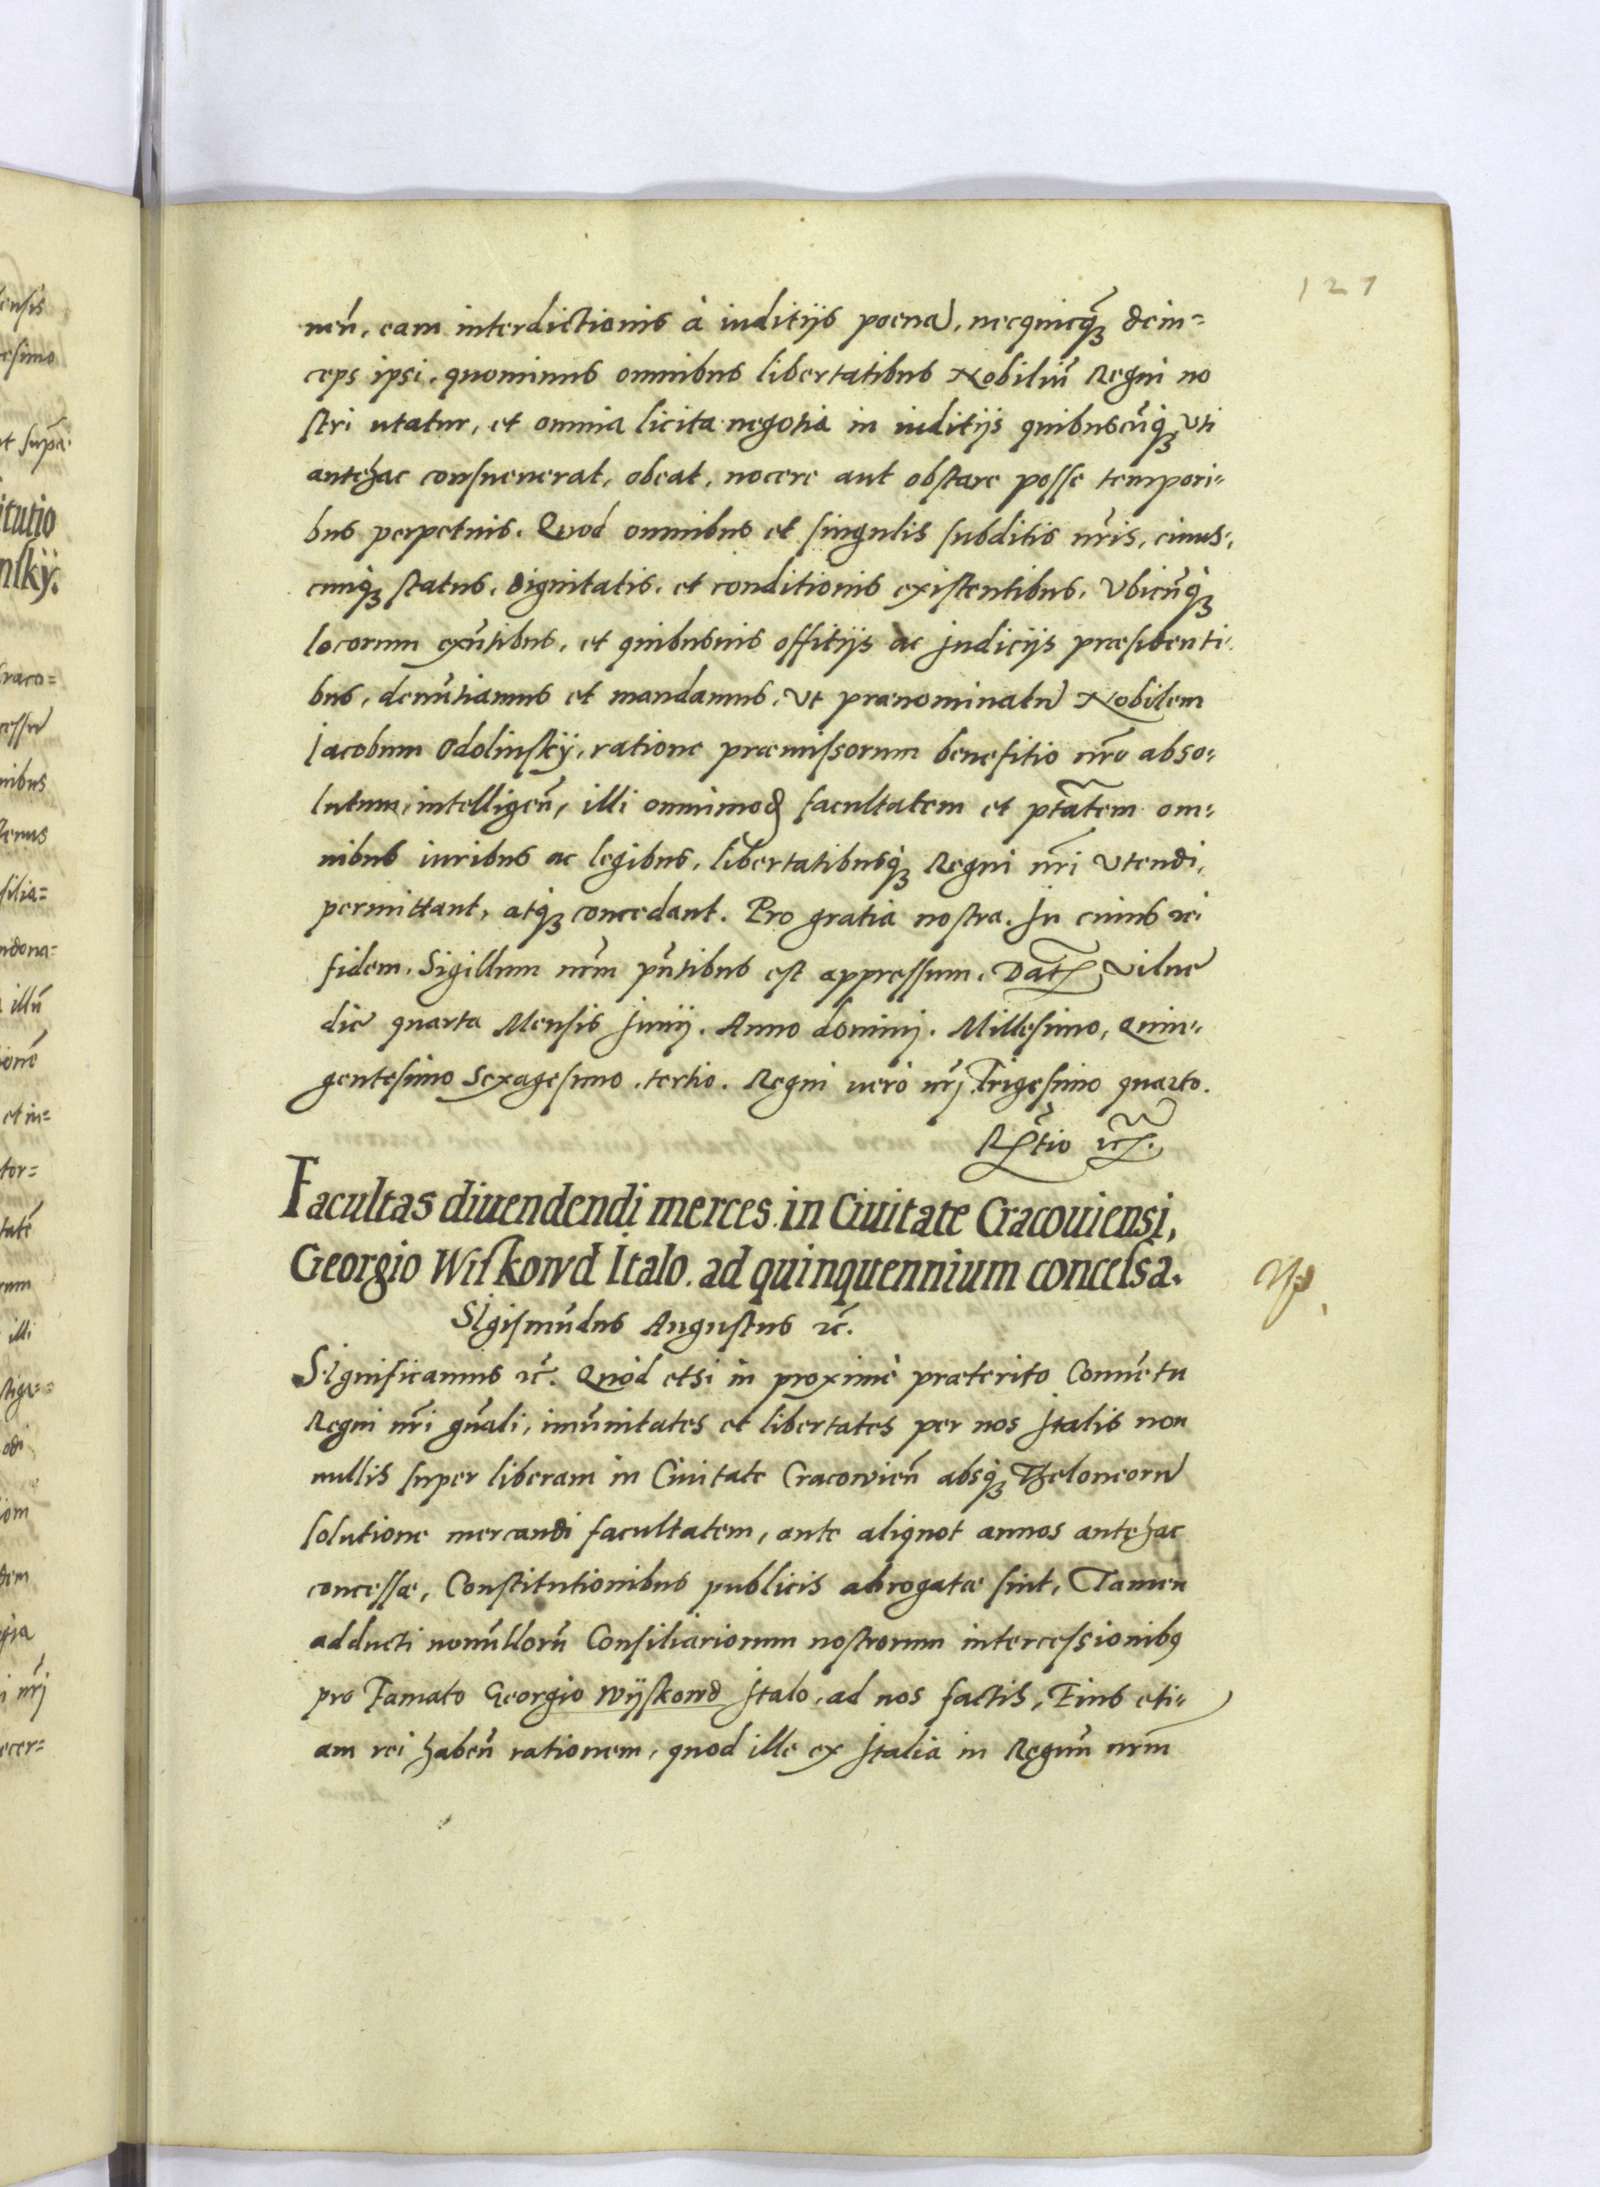 121
nen̄, eam interdictionis à iuditijs poena, necquicq̄ꝫ dein=
ceps ipsi, quominus omnibus libertatibus Nobiliū Regni no
stri utatur, et omnia licita negotia in iuditijs quibuscūqꝫ uti
antehac consueuerat, obeat, nocere aut obstare posse tempori-
bus perpetuis. Quod omnibus et singulis subditis nr̄is, cuius-
cunqꝫ status, dignitatis, et conditionis existentibus, Vbicūqꝫ
locorum exn̄tibus, et quibusuis offitijs ac judicijs præsidenti-
bus, denūtiamus et mandamus, ut prænominatū Nobilem
Jacobum Odolinskÿ, ratione præmissorum benefitio nr̄o abso-
lutum, intelligen̄, illi omnimod facultatem et ptātem om-
nibus iuribus ac legibus, libertatibusqꝫ Regni nr̄i utendi,
permittant, atqꝫ concedant. Pro gratia nostra. In cuius rei
fidem, Sigillum nr̄m pn̄tibus est appressum. Dat Vilnę
die quarta Mensis Junij. Anno domini. Millesimo, Quin-
gentesimo Sexagesimo tertio. Regni verò nr̄j Trigesimo quarto.
Rtio ꝛc̄.
Facultas diuendendi merces in Ciuitate Cracouiensi,
Georgio Wiskowd Italo. ad quinquennium concessa.
Sigismūdus Augustus ꝛc̄.
Significamus ꝛc̄. Quòd etsi in proximè præterito Conuētu
Regni nr̄i gn̄ali, imūnitates et libertates per nos Italis non
nullis super liberam in Ciuitate Cracowien̄ absqꝫ Theloneorū
solutione mercandi facultatem, ante aliquot annos antehac
concessæ, Constitutionibus publicis abrogatæ sint, Tamen
adducti nonūllorū Consiliariorum nostrorum intercessionibꝰ
pro Famato Georgio Wÿskowd Italo, ad nos factis, Eius eti-
am rei haben̄ rationem, quod ille ex Italia in Regnū nr̄m